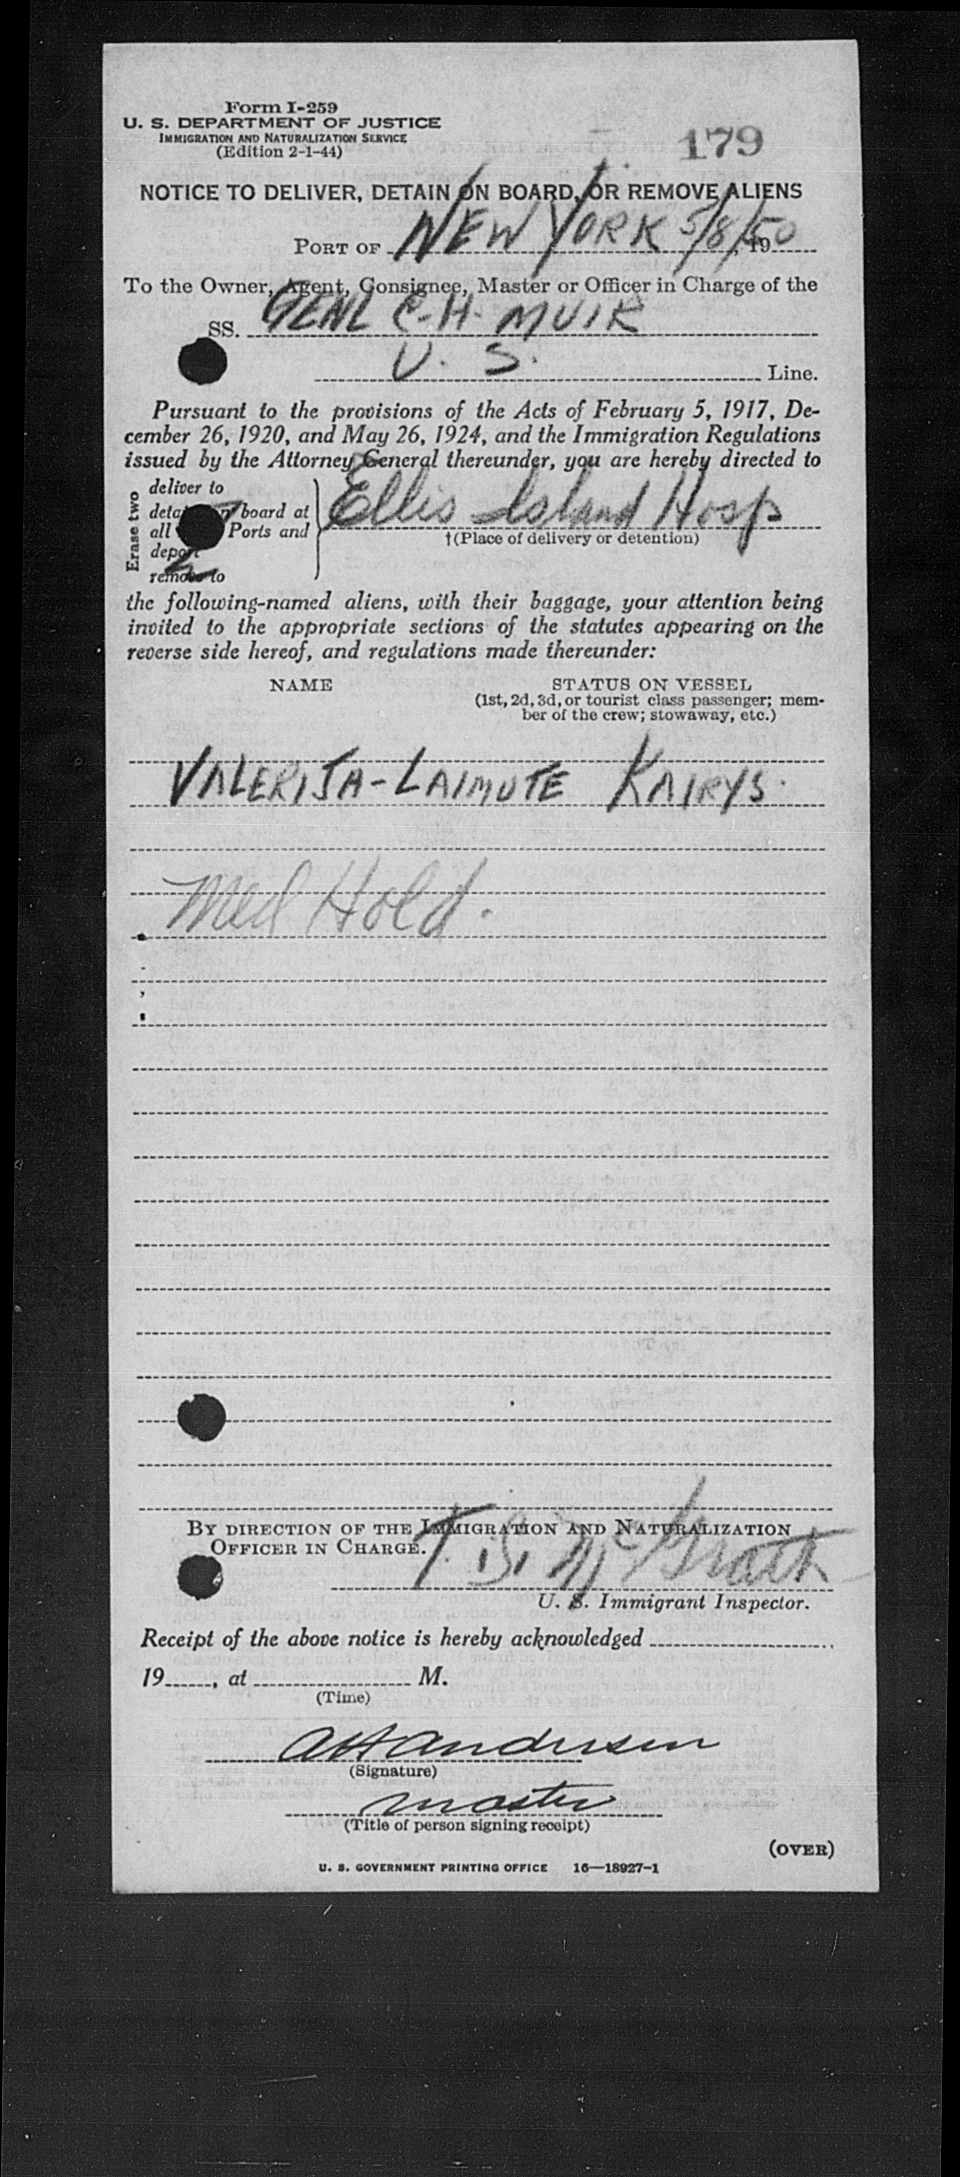 Form I-259
U. S. DEPARTMENT OF JUSTICE
IMMIGRATION AND NATURALIZATION SERVICE
(Edition 2-1-44)
179
NOTICE TO DELIVER, DETAIN ON BOARD, OR REMOVE ALIENS
PORT OF NEW YORK 5/8/50, 19
To the Owner, Agent, Consignee, Master or Officer in Charge of the
SS. GENL C-H- MUIR
U. S. Line.
Pursuant to the provisions of the Acts of February 5, 1917, De-
cember 26, 1920, and May 26, 1924, and the Immigration Regulations
issued by the Attorney General thereunder, you are hereby directed to
Erase two
deliver to
board at
all Ports and
deport
remove to
Ellis Island Hosp
†(Place of delivery or detention)
the following-named aliens, with their baggage, your attention being
invited to the appropriate sections of the statutes appearing on the
reverse side hereof, and regulations made thereunder:
NAME
STATUS ON VESSEL
(1st, 2d, 3d, or tourist class passenger; mem-
ber of the crew; stowaway, etc.)
VALERIJA-LAIMUTE KAIRYS.
Med Hold.
BY DIRECTION OF THE IMMIGRATION AND NATURALIZATION
OFFICER IN CHARGE.
McGrath
U. S. Immigrant Inspector.
Receipt of the above notice is hereby acknowledged
19......, at M.
(Time)
AH Andersen
(Signature)
master
(Title of person signing receipt)
(OVER)
U. S. GOVERNMENT PRINTING OFFICE 16—18927-1